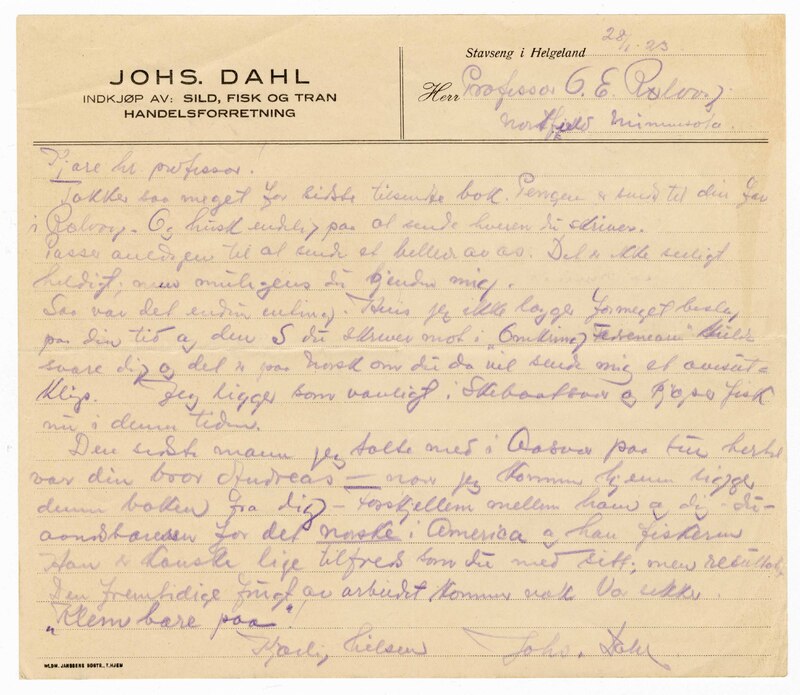 JOHS. DAHL
INDKJØP AV: SILD, FISK OG TRAN
HANDELSFORRETNING
Stavseng i Helgeland 28/1 - 23
Herr Professor O. E. Rølvaag.
Northfield Minnesota.
Kjære hr professor.
Takker saa meget for sidste tilsendte bok. Pengene er sendt til din far
i Rølvaag. Og husk endelig paa at sende hvad du skriver.
Passer anledningen til at sende et billede av os. Det er ikke
heldigt, men muligens du kjender mig.
Saa var det endnu en ting. Hvis jeg ikke lægger formeget beslag
paa din tid og den du skriver mot i "Omkring Fædrearven"
svare dig og det er paa Norsk om du da vil sende mig et avisut-
klip. Jeg ligger som vanligt i Skibbaatsvær og kjøper fisk
nu i denne tiden.
Den sidste mann jeg talte med i Aasvær paa
var din bror Andreas — naar jeg kommer hjem ligger
denne boken fra dig — forskjellem mellem ham og dig - du
for det norske i America og han fiskeren
Han er kanske lige tilfreds som du med sitt, men
Den fremtidige frugt av arbeidet kommer nok
"Klem bare paa".
Kjærlig hilsen Johs. Dahl